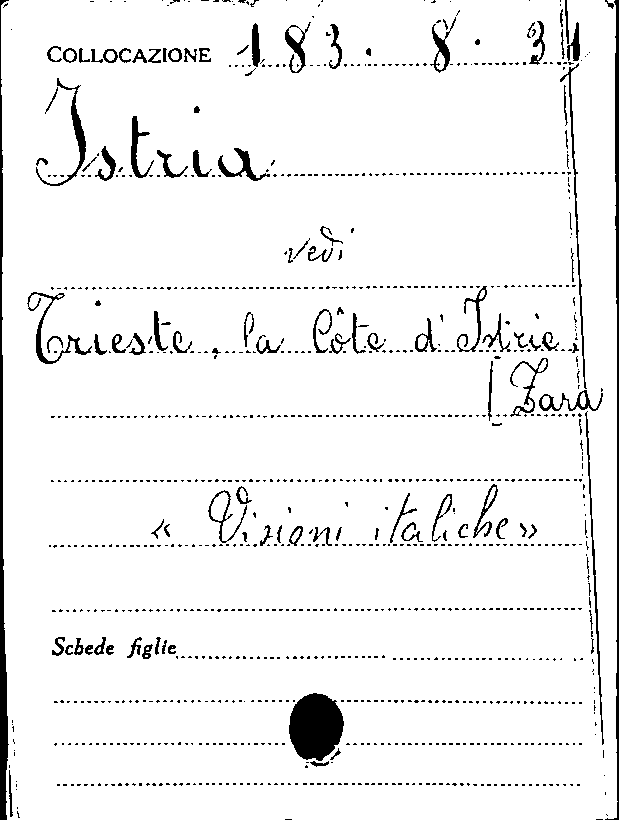 COLLOCAZIONE 183. 8. 31
Istria
vedi
Trieste, la Côte d'Istrie.
[Zara
« Visioni italiche »
Schede figlie